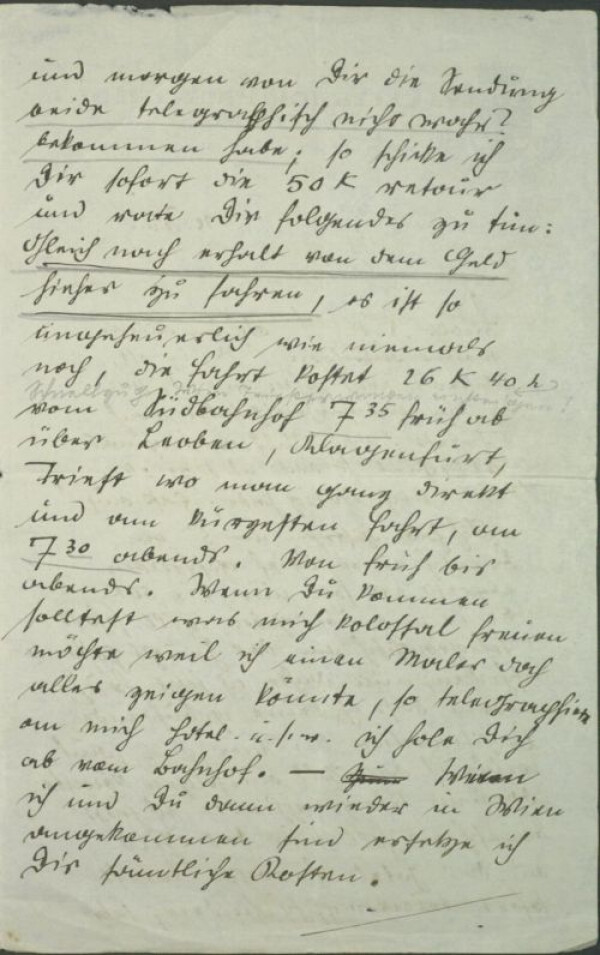 und morgen von Dir die Sendung
beide telegraphisch nicht wahr?
bekommen habe; so schicke ich
Dir sofort die 50 K retour
und rate Dir folgendes zu tun:
Gleich nach erhalt von dem Geld
hieher zu fahren, es ist so
ungeheuerlich wie niemals
noch, die Fahrt kostet 26 K 40 h
Schnellzug
vom Südbahnhof 7 35 früh ab
über Leoben, Klagenfurt,
Triest wo man ganz direkt
und am kürzesten fahrt, an
7 30 abends. Von früh bis
abends. Wenn Du kommen
solltest was mich kolossal freuen
möchte weil ich einen Maler doch
alles zeigen könnte, so telegraphiere
an mich Hotel. u.s.w. ich hole Dich
ab vom Bahnhof. — Wenn
ich und Du dann wieder in Wien
angekommen sind ersetze ich
Dir sämtliche Kosten.